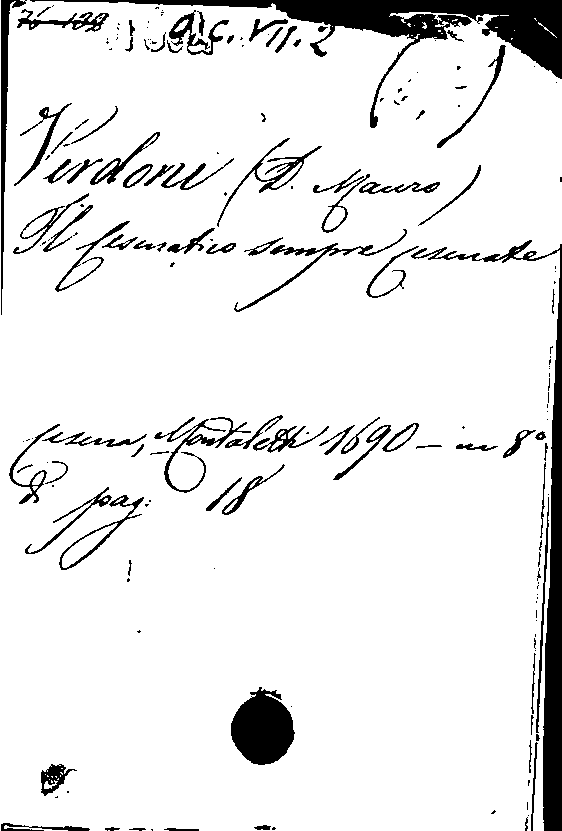 76-139 91c.VII.2
Verdoni (D. Mauro)
Il Cesenatico sempre Cesenate
Cesena, Montaletti 1690 – in 8°
di pag: 18